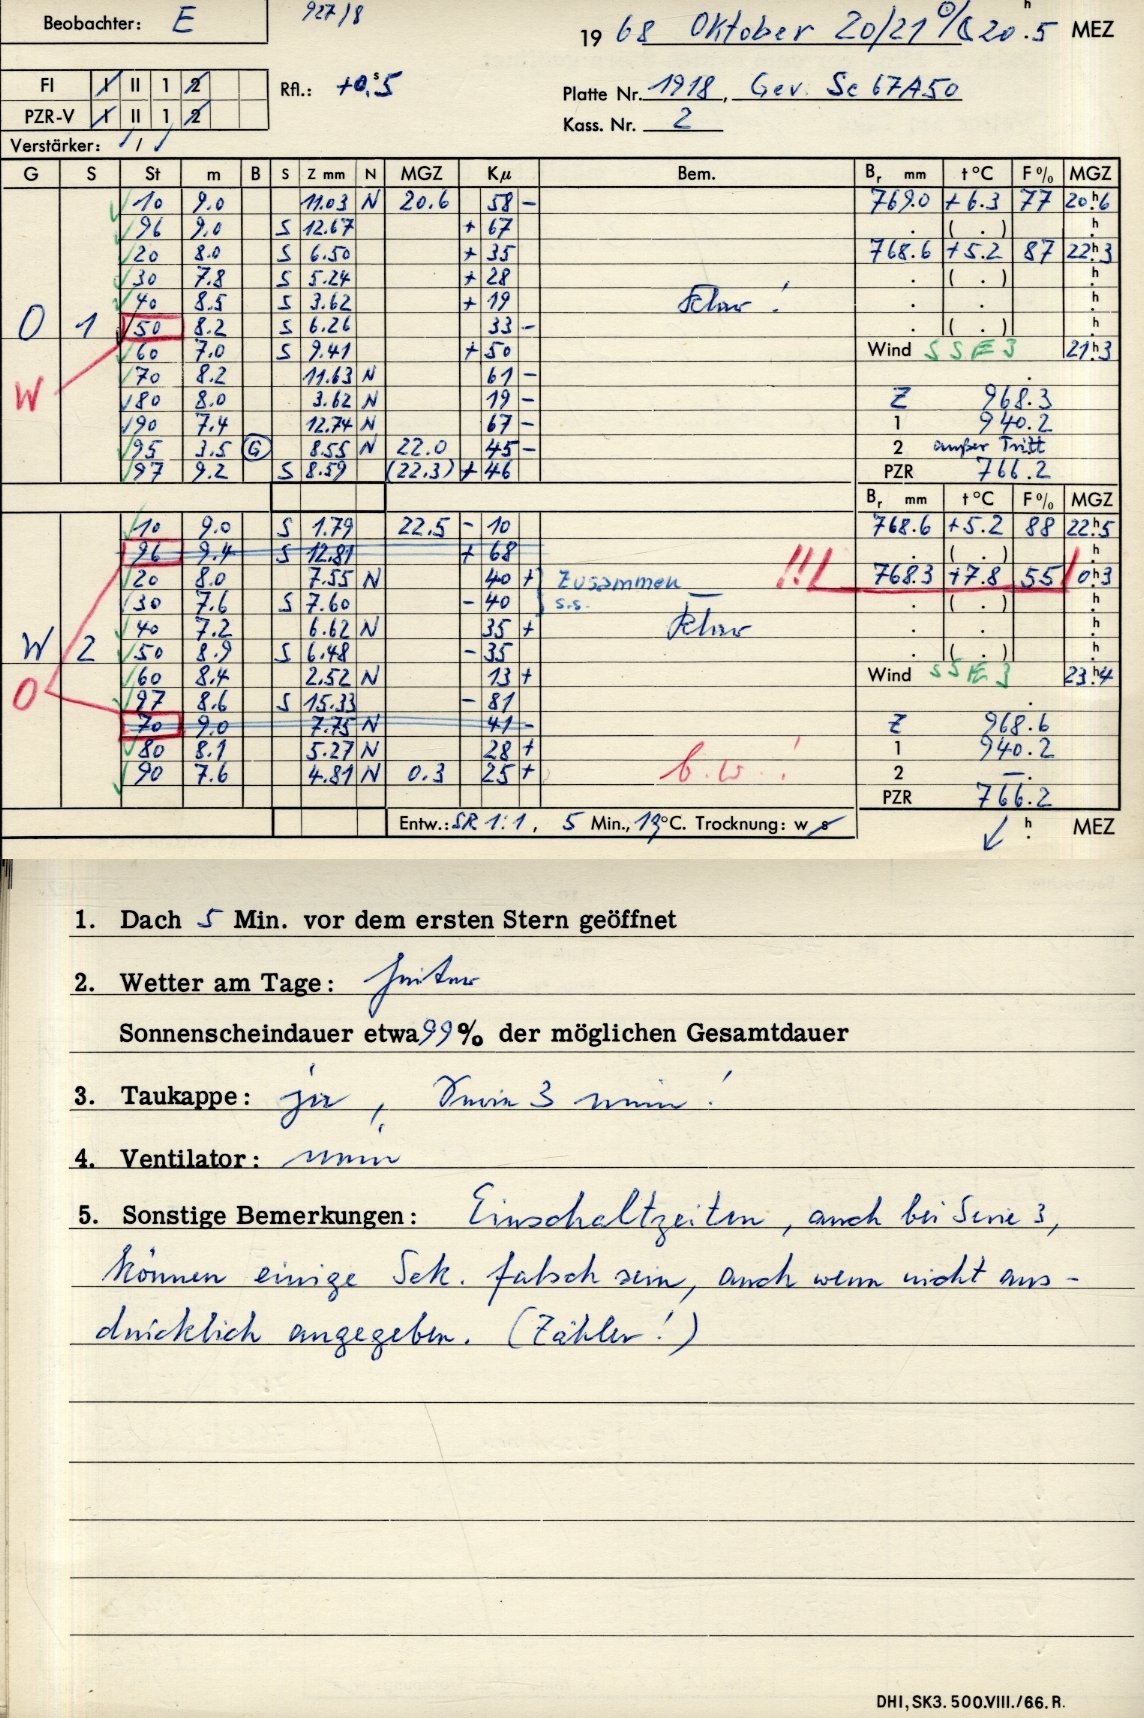 Beobachter: E 927/8
19 68 Oktober 20/21 ☉/☾ 20h.5 MEZ
FI I II 1 2 Rfl.: +0s.5 Platte Nr. 1918, Gev. Sc 67A50
PZR-V I II 1 2 Kass. Nr. 2
Verstärker: / /
G S St m B S Z mm N MGZ Kμ Bem. Br mm t°C F% MGZ
10 9.0 11.03 N 20.6 58 - 769.0 +6.3 77 20h.6
96 9.0 S 12.67 + 67 . ( . ) h.
20 8.0 S 6.50 + 35 768.6 +5.2 87 22h.3
30 7.8 S 5.24 + 28 . ( . ) h.
40 8.5 S 3.62 + 19 klar! . . h.
O 1 50 8.2 S 6.26 33 - ( . ) h.
60 7.0 S 9.41 + 50 Wind SSE 3 21h.3
W 70 8.2 11.63 N 61 -
80 8.0 3.62 N 19 - Z 968.3
90 7.4 12.74 N 67 - 1 940.2
95 3.5 G 8.55 N 22.0 45 - 2 außer Tritt
97 9.2 S 8.59 (22.3) + 46 PZR 766.2
Br mm t°C F% MGZ
10 9.0 S 1.79 22.5 - 10 768.6 +5.2 88 22h.5
96 9.4 S 12.81 + 68 !!! . ( . ) h.
20 8.0 7.55 N 40 + Zusammen 768.3 +7.8 55 0h.3
30 7.6 S 7.60 - 40 s.s. . ( . ) h.
40 7.2 6.62 N 35 + klar . . h.
W 2 50 8.9 S 6.48 - 35 . ( . ) h.
60 8.4 2.52 N 13 + Wind SSE 3 23h.4
O 97 8.6 S 15.33 - 81
70 9.0 7.75 N 41 - Z 968.6
80 8.1 5.27 N 28 + 1 940.2
90 7.6 4.81 N 0.3 25 + b.w.! 2 —.
PZR 766.2
Entw.: SR 1:1, 5 Min., 19°C. Trocknung: w s ↙ h. MEZ
1. Dach 5 Min. vor dem ersten Stern geöffnet
2. Wetter am Tage: heiter
Sonnenscheindauer etwa 99% der möglichen Gesamtdauer
3. Taukappe: ja, Serie 3 nein!
4. Ventilator: nein
5. Sonstige Bemerkungen: Einschaltzeiten, auch bei Serie 3,
können einige Sek. falsch sein, auch wenn nicht aus-
drücklich angegeben. (Zähler!)
DHI, SK3. 500.VIII./66. R.